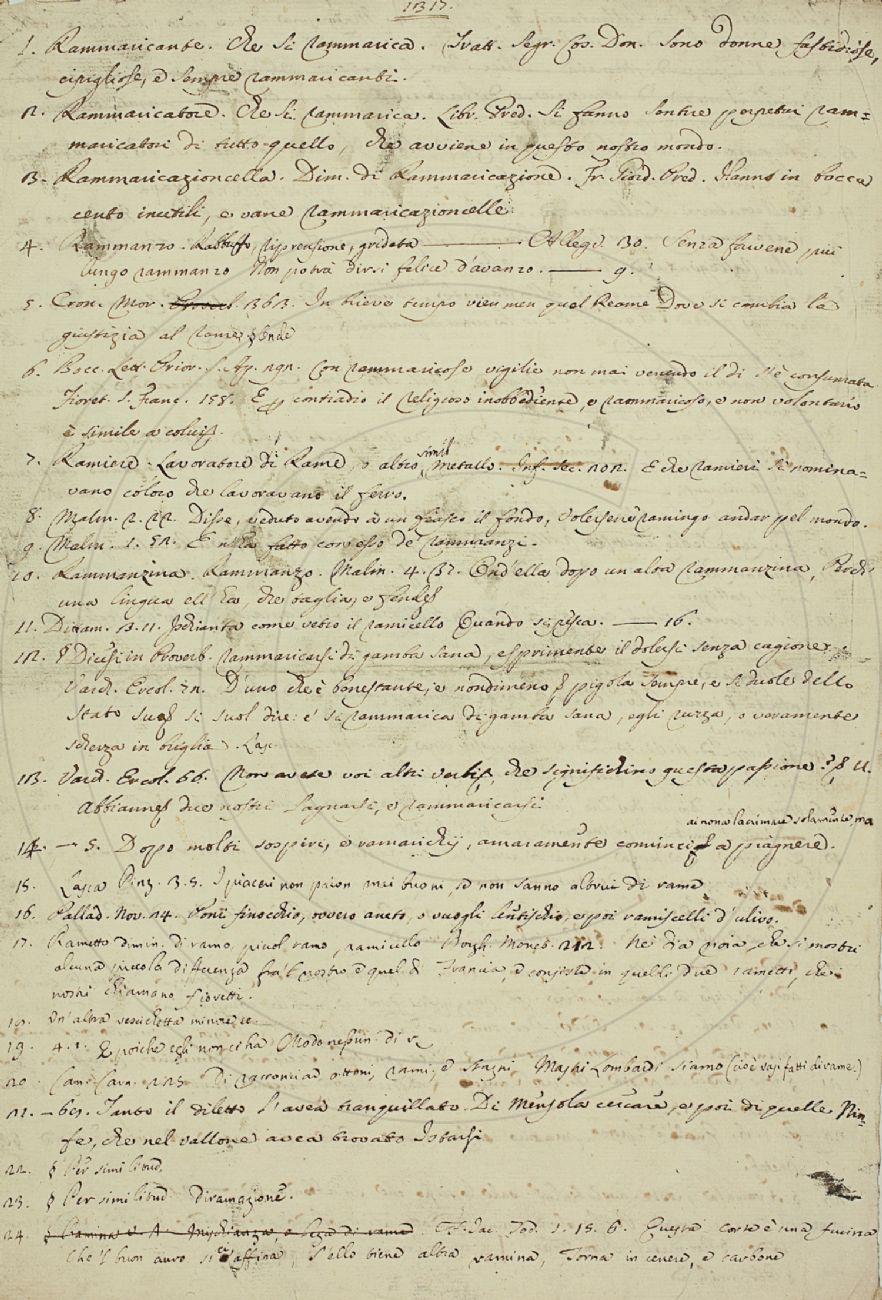 1317.
1. Rammaricante. Che si rammarica. Tratt. Segr. Cos. Don. Sono donne fastidiose,
cipigliose, e sempre rammaricanti.
12. Rammaricatore. Che si rammarica. Libr. Pred. Si fanno sentire perpetui ram=
maricatori di tutto quello, che avviene in questo nostro mondo.
13. Rammaricazioncella. Dim. di Rammaricazione. Fr. Giord. Pred. Hanno in bocca
cento inutili, e vane rammaricazioncelle.
4. Rammanzo. Rabbuffo, riprensione, gridata Allegr. 30. Senza farvene più
lungo rammanzo Non potrà dirsi felice d'avanzo. 9.
5. Cron. Mor. 363. In brieve tempo vien men quel Reame Dove si cambia la
giustizia al rame
6. Bocc. Lett. Prior. S. Ap. Con rammaricose vigilie non mai venendo il dì s'è consumata
Fioret. S. Franc. 155. E contradio il religioso inobbediente, e rammaricoso, e non volontario
è simile a
7. Ramiere. Lavoratore di Rame, o altro simil metallo. Inf. Sec. 202. E che ramieri si nomina=
vano coloro che lavoravano il ferro.
8. Malm. 2. 22. Disse, veduto avendo a un fiasco il fondo, Volersene ramingo andar pel mondo.
9. Malm. 1. 52. E fatto de' rammanzi.
10. Rammanzina. Rammanzo. Malm. 4. 32. Ond'ella dopo un'altra rammanzina, Perch'
una lingua ell'ha, che taglia, e fende
11. Dittam. 3. 11. Schianta come vetro il ramicello Quando si 16.
112. § Dicesi in Proverb. rammaricarsi di gamba sana, esprimente il dolersi senza cagione.
Varch. Ercol. 72. D'uno che è benestante, e nondimeno pigola sempre, e si duole dello
stato suo si suol dire: e' si rammarica di gamba sana, egli ruzza, o veramente
scherza in briglia. Lasc.
113. Varch. Ercol. 66. Non avete voi altri verbi, che significhino questa passione? U.
Abbiamne due nostri lagnarsi, e rammaricarsi
ai non a lacrimare solamente, ma
14. 5. Dopo molti sospiri, e ramarichij, amaramente cominciò a piagnere.
15. Lasca Pinz. 3. 5. I piaceri non puion mai buoni, se non sanno altrui di rame
16. Pallad. Nov. 14. Poni finocchio, ovvero aneto, o vuogli lentischio, e poi ramiscelli d'ulivo.
17. Rametto dimin. di ramo, piccol ramo, ramicello Borgh. Mones. 212. Nè dia noia, che si mostri
alcuna piccola differenza fra 'l nostro e quel di Francia, e consista in quelli due rametti, che i
nostri chiamano fioretti.
18. Un'altra vescichetta minore
19. 4. 1. E poichè egli non ci ha Modo nessun di
20. Cant. Carn. 225. Di racconciar ottoni, rami, e stagni Mastri Lombardi siamo (cioè vasi fatti di rame.)
21. 69. Tanto il diletto l'avea tranquillato Di Mensola cercare, e poi di quelle Nin=
fe, che nel vallone avea trovato Istarsi
22. § Per similitud.
23. § Per similitud Diramazione.
24. Fr. Jac. Tod. 1. 15. 6. Questa corte è una fucina
Che 'l buon auro si ci affina, S'ello tiene altra ramina, Torna in cenere, e carbone